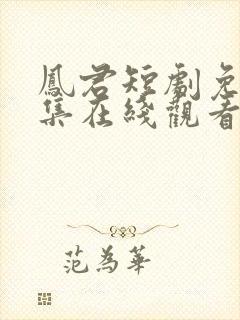 鳳君短劇免
集在綫觀看
范為華